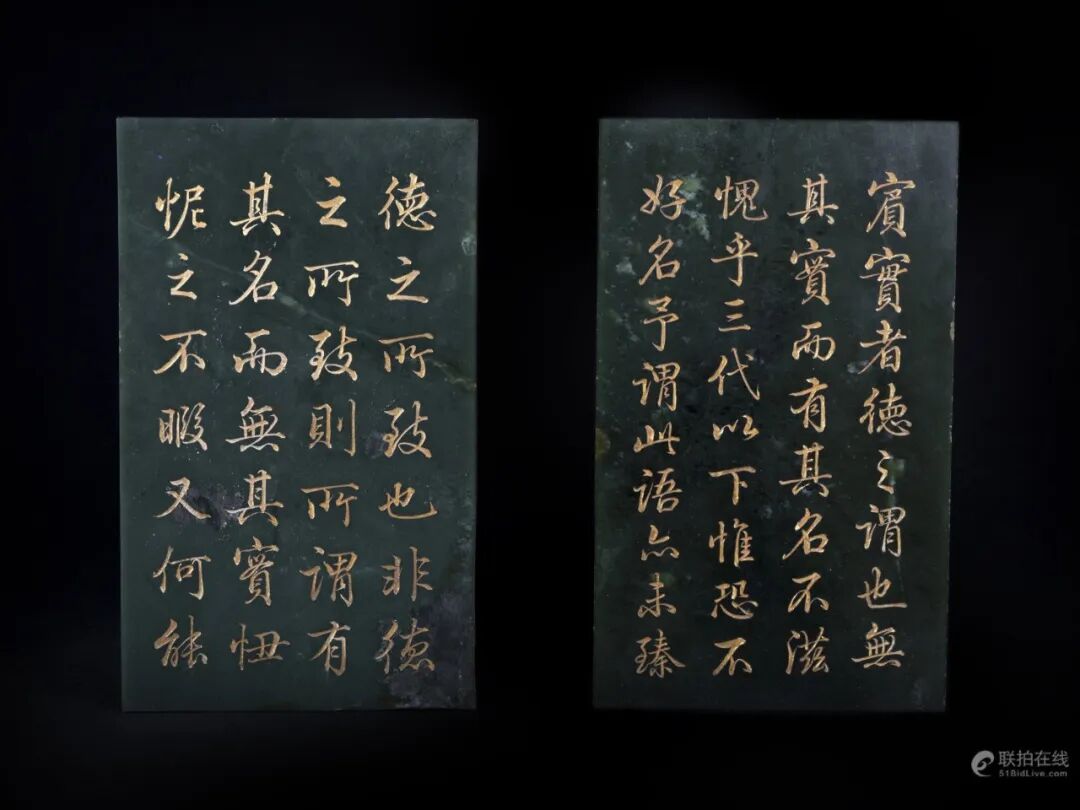 賓實者德之謂也無
其實而有其名不滋
愧乎三代以下惟恐不
好名予謂此語亦未臻
德之所致也非德
之所致則所謂有
其名而無其實忸
怩之不暇又何能
联拍在线
51BidLive.com